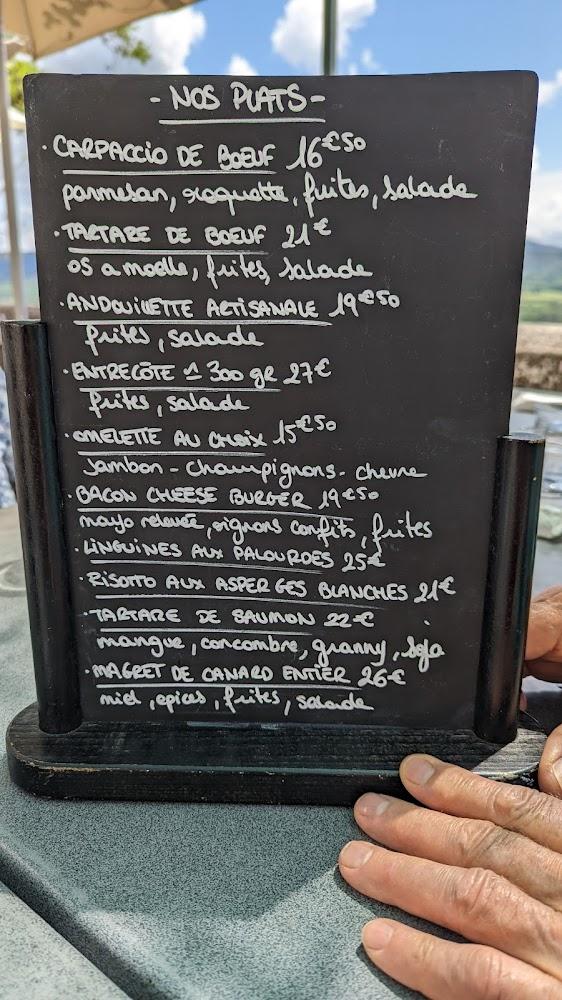 - NOS PLATS -
· CARPACCIO DE BOEUF 16€50
parmesan, roquette, frites, salade
· TARTARE DE BOEUF 21€
os a moelle, frites, salade
· ANDOUILLETTE ARTISANALE 19€50
frites, salade
· ENTRECÔTE ± 300 gr 27€
frites, salade
· OMELETTE AU CHOIX 15€50
Jambon - Champignons - chevre
· BACON CHEESE BURGER 19€50
mayo relevée, oignons confits, frites
· LINGUINES AUX PALOURDES 25€
· RISOTTO AUX ASPERGES BLANCHES 21€
· TARTARE DE SAUMON 22€
mangue, concombre, granny, soja
· MAGRET DE CANARD ENTIER 26€
miel, epices, frites, salade